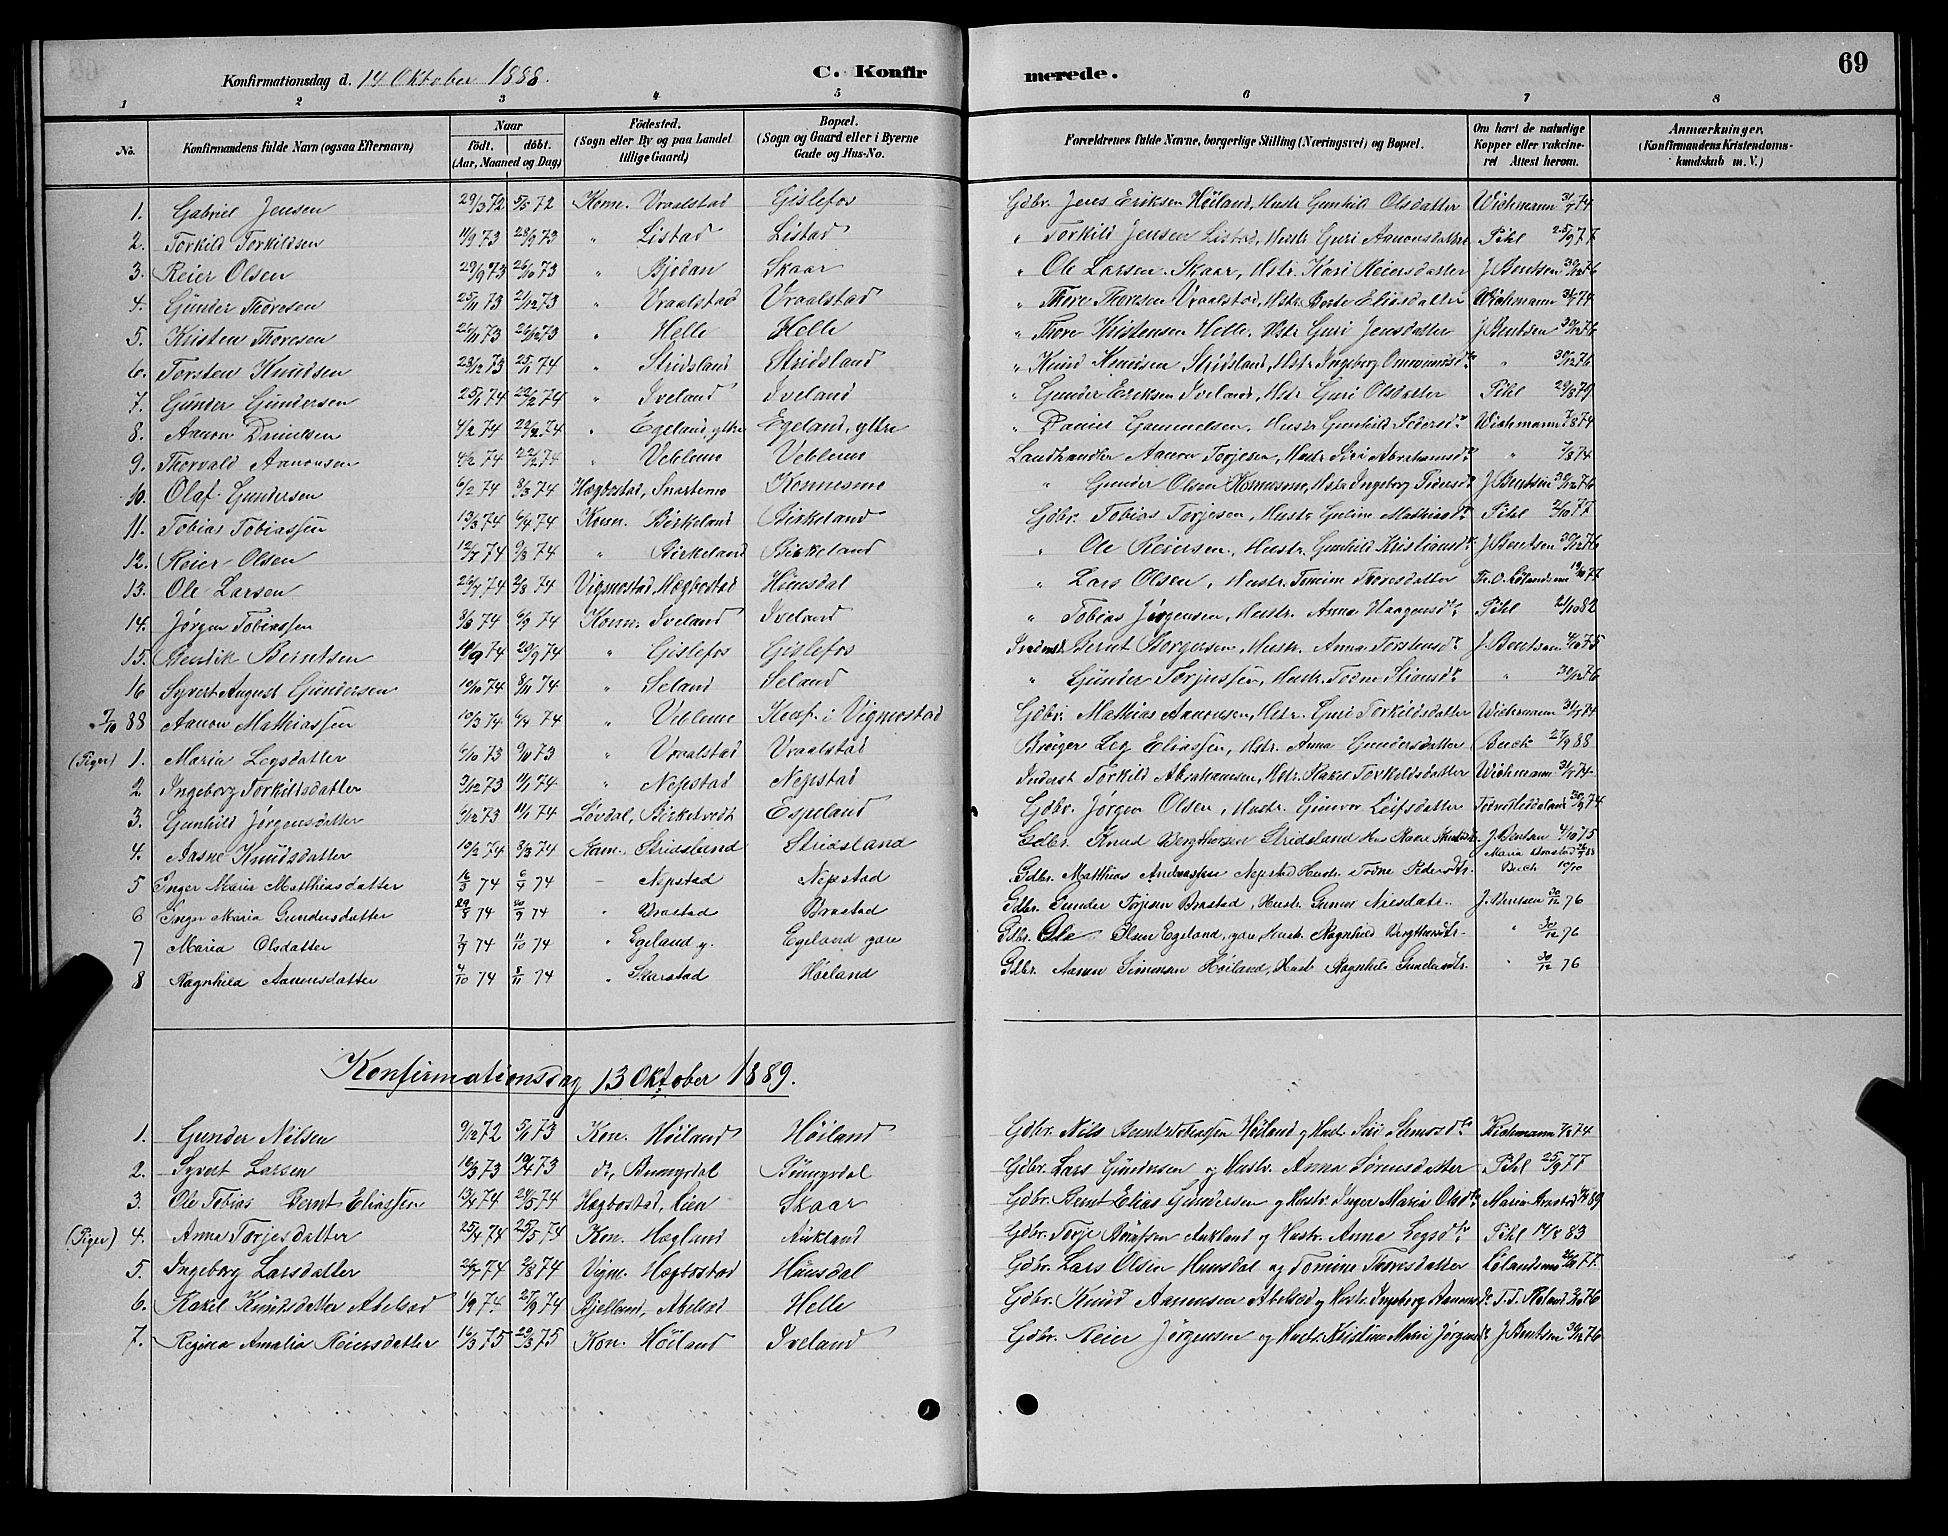 69
Konfirmationsdag d. 14 Oktober 1888. C. Konfirmerede.
1 2 3 4 5 6 7 8
No. Konfirmandens fulde Navn (ogsaa Efternavn) Naar født. døbt. (Aar, Maaned og Dag) Fødested. (Sogn eller By og paa Landet tillige Gaard) Bopæl. (Sogn og Gaard eller i Byerne Gade og Hus-No. Forældrenes fulde Navne, borgerlige Stilling (Næringsvei) og Bopæl. Om havt de naturlige Kopper eller vakcineret Attest herom. Anmærkninger. (Konfirmandens Kristendomskundskab m. V.)
1. Gabriel Jensen 29/3 72 5/5 72 Konn. Vraalstad Gislefos Gdbr. Jens Eriksen Høiland, Hustr. Gunhild Olsdatter Wichmann 31/7 74
2. Torkild Torkildsen 11/9 73 28/9 73 " Listad Listad " Torkild Jensen Listad, Hustr. Guri Aanonsdatter Pihl 25/9 77
3. Reier Olsen 29/9 73 26/10 73 " Bjodan Skaar " Ole Larsen Skaar, Hstr. Kari Reiersdatter J. Bentsen 30/12 76
4. Günder Thoresen 25/11 73 21/12 73 " Vraalstad Vraalstad " Thore Thoresen Vraalstad, Hstr. Berte Eliasdatter Wichmann 31/7 74
5. Kristen Thoresen 26/11 73 26/12 73 " Helle Helle " Thore Kristensen Helle, Hstr. Guri Jensdatter J. Bentsen 30/12 76
6. Torsten Knudsen 23/12 73 25/1 74 " Stridsland Stridsland " Knud Knudsen Stridsland, Hstr. Ingeborg " 30/12 76
7. Günder Gundersen 25/1 74 22/2 74 " Iveland Iveland " Gunder Eriksen Iveland, Hstr. Guri Olsdatter Pihl 29/8 79
8. Aanon Danielsen 4/2 74 22/2 74 " Egeland, ytre Egeland, ytre " Daniel Gammelsen, Hustr. Gunhild Pedersd. Wichmann 7/8 74
9. Thorvald Aanonsen 4/2 74 22/2 74 " Veblem Veblem Landhandler Aanon Torjesen, Hustr. Siri Abrahamsd. " 7/8 74
10. Olaf Gundersen 6/2 74 8/3 74 Hægbostad, Snartemo Konnesmo " Gunder Olsen Konnesmo, Hstr. Ingeborg J. Bentsen 30/12 76
11. Tobias Tobiassen 13/3 74 6/4 74 Konn. Birkeland Birkeland Gdbr. Tobias Torjesen, Hustr. Guline Mathiasd. Pihl 2/10 77
12. Reier Olsen 12/7 74 9/8 74 " Birkeland Birkeland " Ole Reiersen, Hustr. Gunhild Kristiansd. J. Bentsen 30/12 76
13. Ole Larsen 26/7 74 2/8 74 Vigmostad, Hægbostad Hünsdal " Lars Olsen, Hustr. Tomine Thoresdatter Fr. O. Lølandsmo 19/11 77
14. Jørgen Tobiassen 8/8 74 6/9 74 Konn. Iveland Iveland " Tobias Jørgensen, Hustr. Anna Haagensd. Pihl 21/10 82
15. Bendik Berntsen 11/9 74 20/9 74 " Gislefos Gislefos Bernt Børgersen, Hustr. Anna Torstensd. J. Bentsen 4/10 75
16 Syvert August Gündersen 10/10 74 8/11 74 " Seland Seland " Günder Torjussen, Hustr. Todne Stiansd. " 30/12 76
7/10 88 Aanon Mathiassen 10/3 74 6/4 74 " Veblem Konf. i Vigmostad Gdbr. Mathias Aanonsen, Hstr. Guri Torkildsdatter Wichmann 31/7 74
(Piger) 1. Maria Legsdatter 6/10 73 9/11 73 " Vraalstad Vraalstad Brüger Leg Eliassen, Hstr. Anna Gundersdatter Buch 27/9 88
2 Ingeborg Torkildsdatter 3/12 73 11/1 74 " Nepstad Nepstad Inderst Torkild Abrahamsen, Hstr. Rakel Torkildsdatter Wichmann 31/7 74
3. Gunhild Jørgensdatter 6/12 73 11/1 74 Løvdal, Birketvedt Espeland Gdbr. Jørgen Olsen, Hustr. Gunvor Leifsdatter 30/9 74
4. Aasne Knudsdatter 10/2 74 8/3 74 Konn. Stridsland Stridsland Gdbr. Knud Bergthorsen Stridsland J. Bentsen 4/10 75
5 Inger Maria Matthiasdatter 16/3 74 6/4 74 – Nepstad Nepstad Gdbr. Matthias Andreassen Nepstad Hustr. Todne Pedersdtr. Maria Braastad 26/9 88 Buch 10/10
6 Inger Maria Gundersdatter 29/8 74 20/9 74 " Brastad Brastad Gdbr. Gunder Torjesen Brastad, Hustr. Gunvor Nilsdatr. J. Bentsen 30/12 76
7 Maria Olsdatter 7/9 74 11/10 74 " Egeland y. Egeland gare Gdbr. Ole Olsen Egeland, gare, Hustr. Ragnhild Bergthorsdtr. " 30/12 76
8 Ragnhild Aanonsdatter 4/10 74 8/11 74 " Skarstad Høiland Gdbr. Aanon Simonsen Høiland, Hust. Ragnhild Gundersdtr. " 30/12 76
Konfirmationsdag 13 Oktober 1889.
1. Gunder Nilsen 9/12 72 5/1 73 Kon. Høiland Høiland Gdbr. Nils Berntsen Høiland og Hust. Siri Wichmann 7/8 74
2. Syvert Larsen 16/3 73 10/4 73 do, Bumyrdal Bumyrdal Gdbr. Lars Gündersen og Hustr. Anna Sørensdatter Pihl 25/9 77
3. Ole Tobias Bernt Eliassen 13/4 74 24/5 74 Hægbostad, Lien Skaar Gdbr. Bernt Elias Gundersen og Hustr. Inger Maria Olsdtr. Maria Braastad 89
(Piger) 4. Anna Torjesdatter 25/4 74 25/5 74 Kon. Hægland Aukland Gdbr. Torje Aukland og Hustr. Anna Legsdtr. Pihl 14/8 83
5. Ingeborg Larsdatter 26/7 74 2/8 74 Vigm. Hægbostad Hünsdal Gdbr. Lars Olsen Hunsdal og Tomine Thoresdatter Lølandsmo 77.
6. Rakel Knudsdatter Abelsed 1/9 74. 27/9 74 Bjelland, Abelsed Helle Gdbr. Knud Aanonsen Abelsed og Hustr. Ingeborg Aanonsd. T. T. Røland 2/10 76
7. Regina Amalia Reiersdatter 16/3 75 29/3 75 Kon. Høiland Iveland Gdbr. Reier Jørgensen og Hustr. Kristine Marie Jørgensd. J. Bentsen 30/12 76